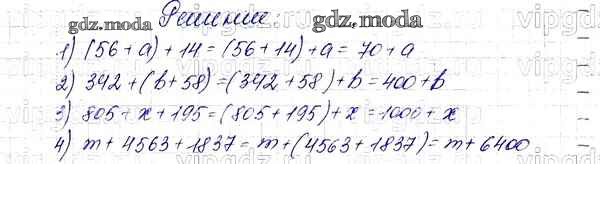 Решение:
gdz.moda gdz.moda
1) (56 + a) + 14 = (56 + 14) + a = 70 + a
2) 342 + (b + 58) = (342 + 58) + b = 400 + b
3) 805 + x + 195 = (805 + 195) + x = 1000 + x
4) m + 4563 + 1837 = m + (4563 + 1837) = m + 6400